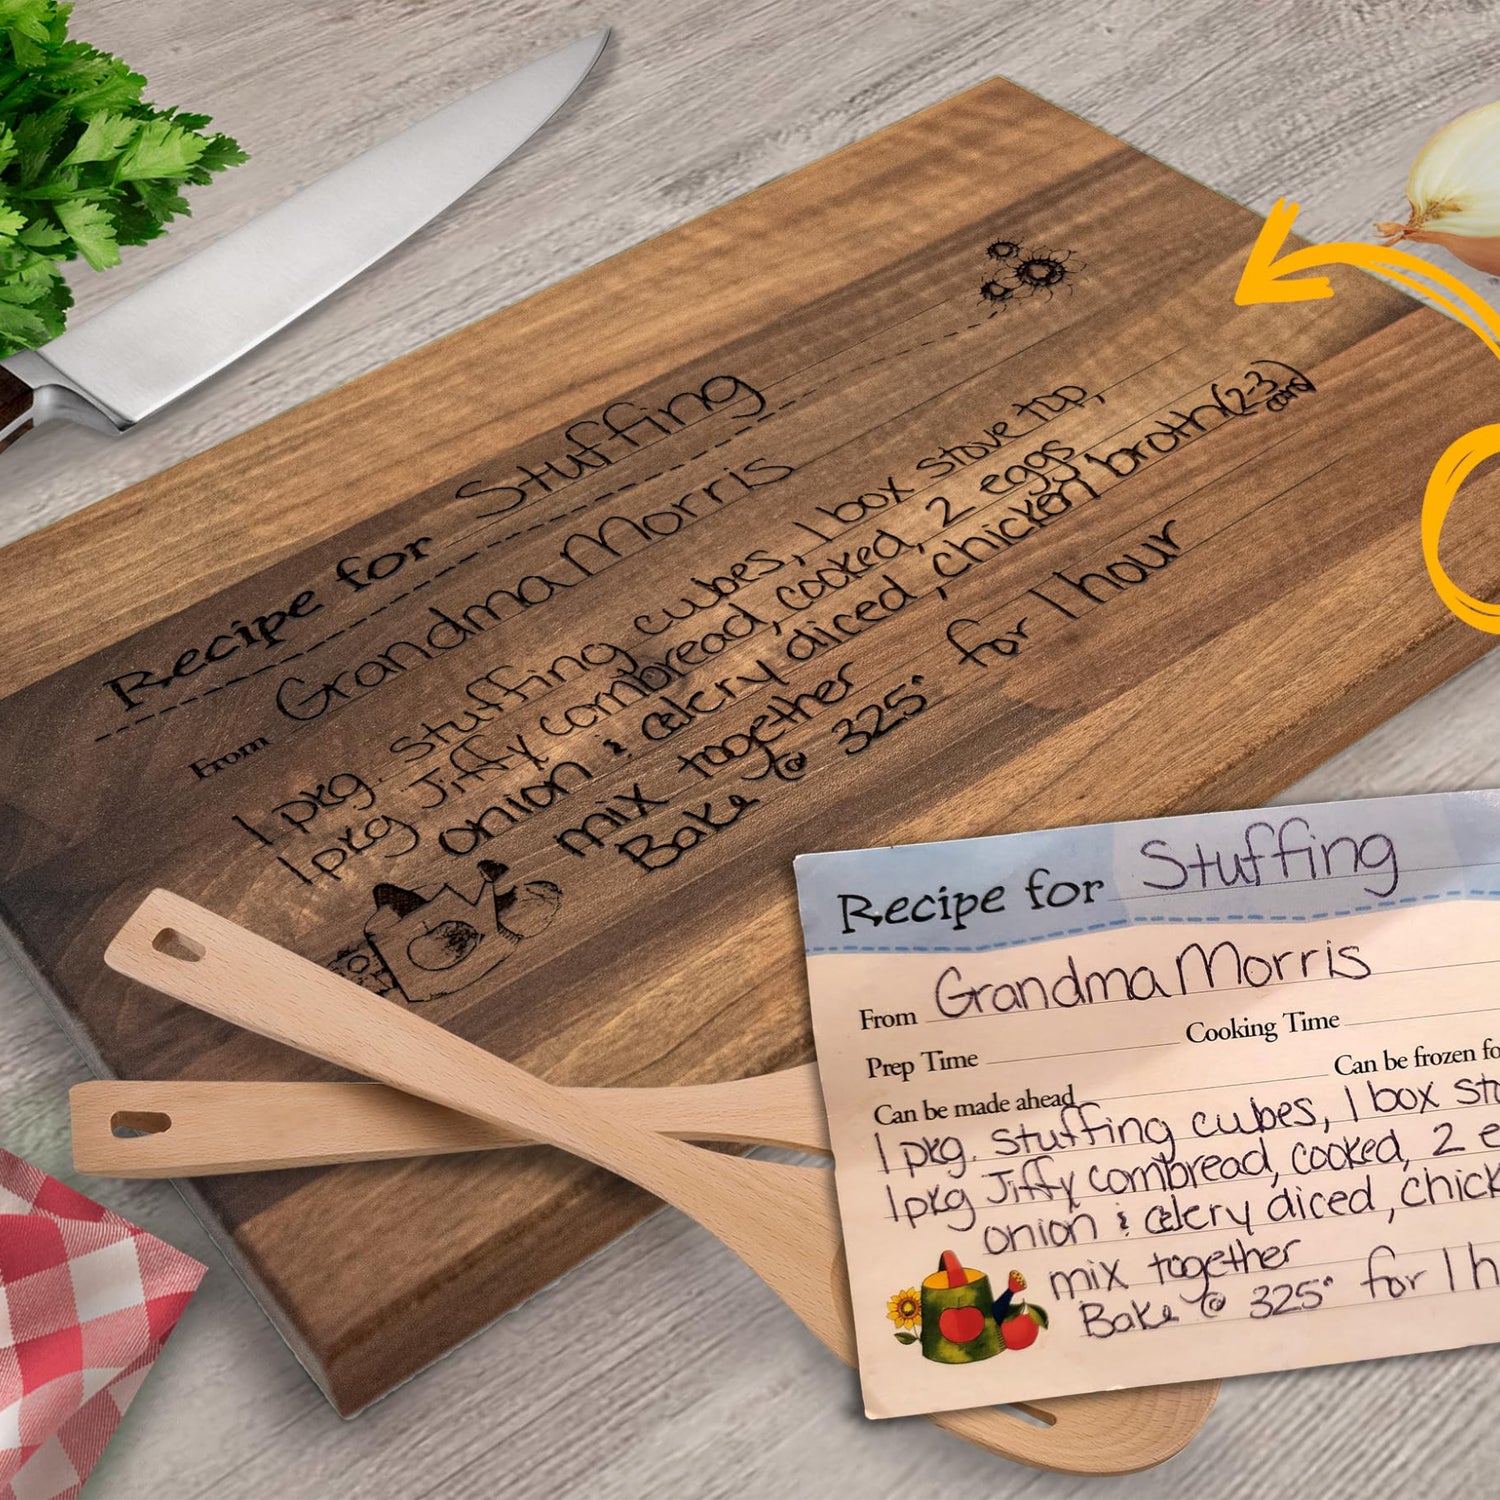 Recipe for Stuffing
From Grandma Morris
1 pkg. stuffing cubes, 1 box stove top,
1 pkg Jiffy cornbread, cooked, 2 eggs
onion & celery diced, chicken broth (2-3 cans)
mix together
Bake @ 325° for 1 hour
Recipe for Stuffing
From Grandma Morris
Prep Time Cooking Time
Can be made ahead Can be frozen fo
1 pkg. stuffing cubes, 1 box sto
1 pkg Jiffy cornbread, cooked, 2 e
onion & celery diced, chick
mix together
Bake @ 325° for 1 h